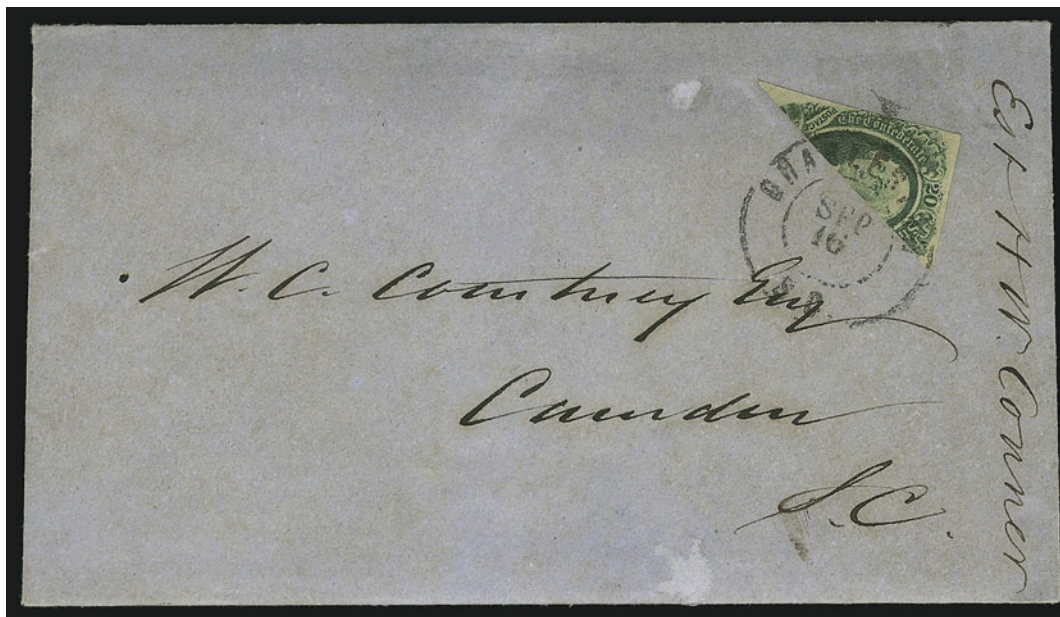 POSTAGE
The Confederate
20
CHA LES
SEP
16
W. C. Courtney Esq
Camden
S.C.
Est H W. Conner